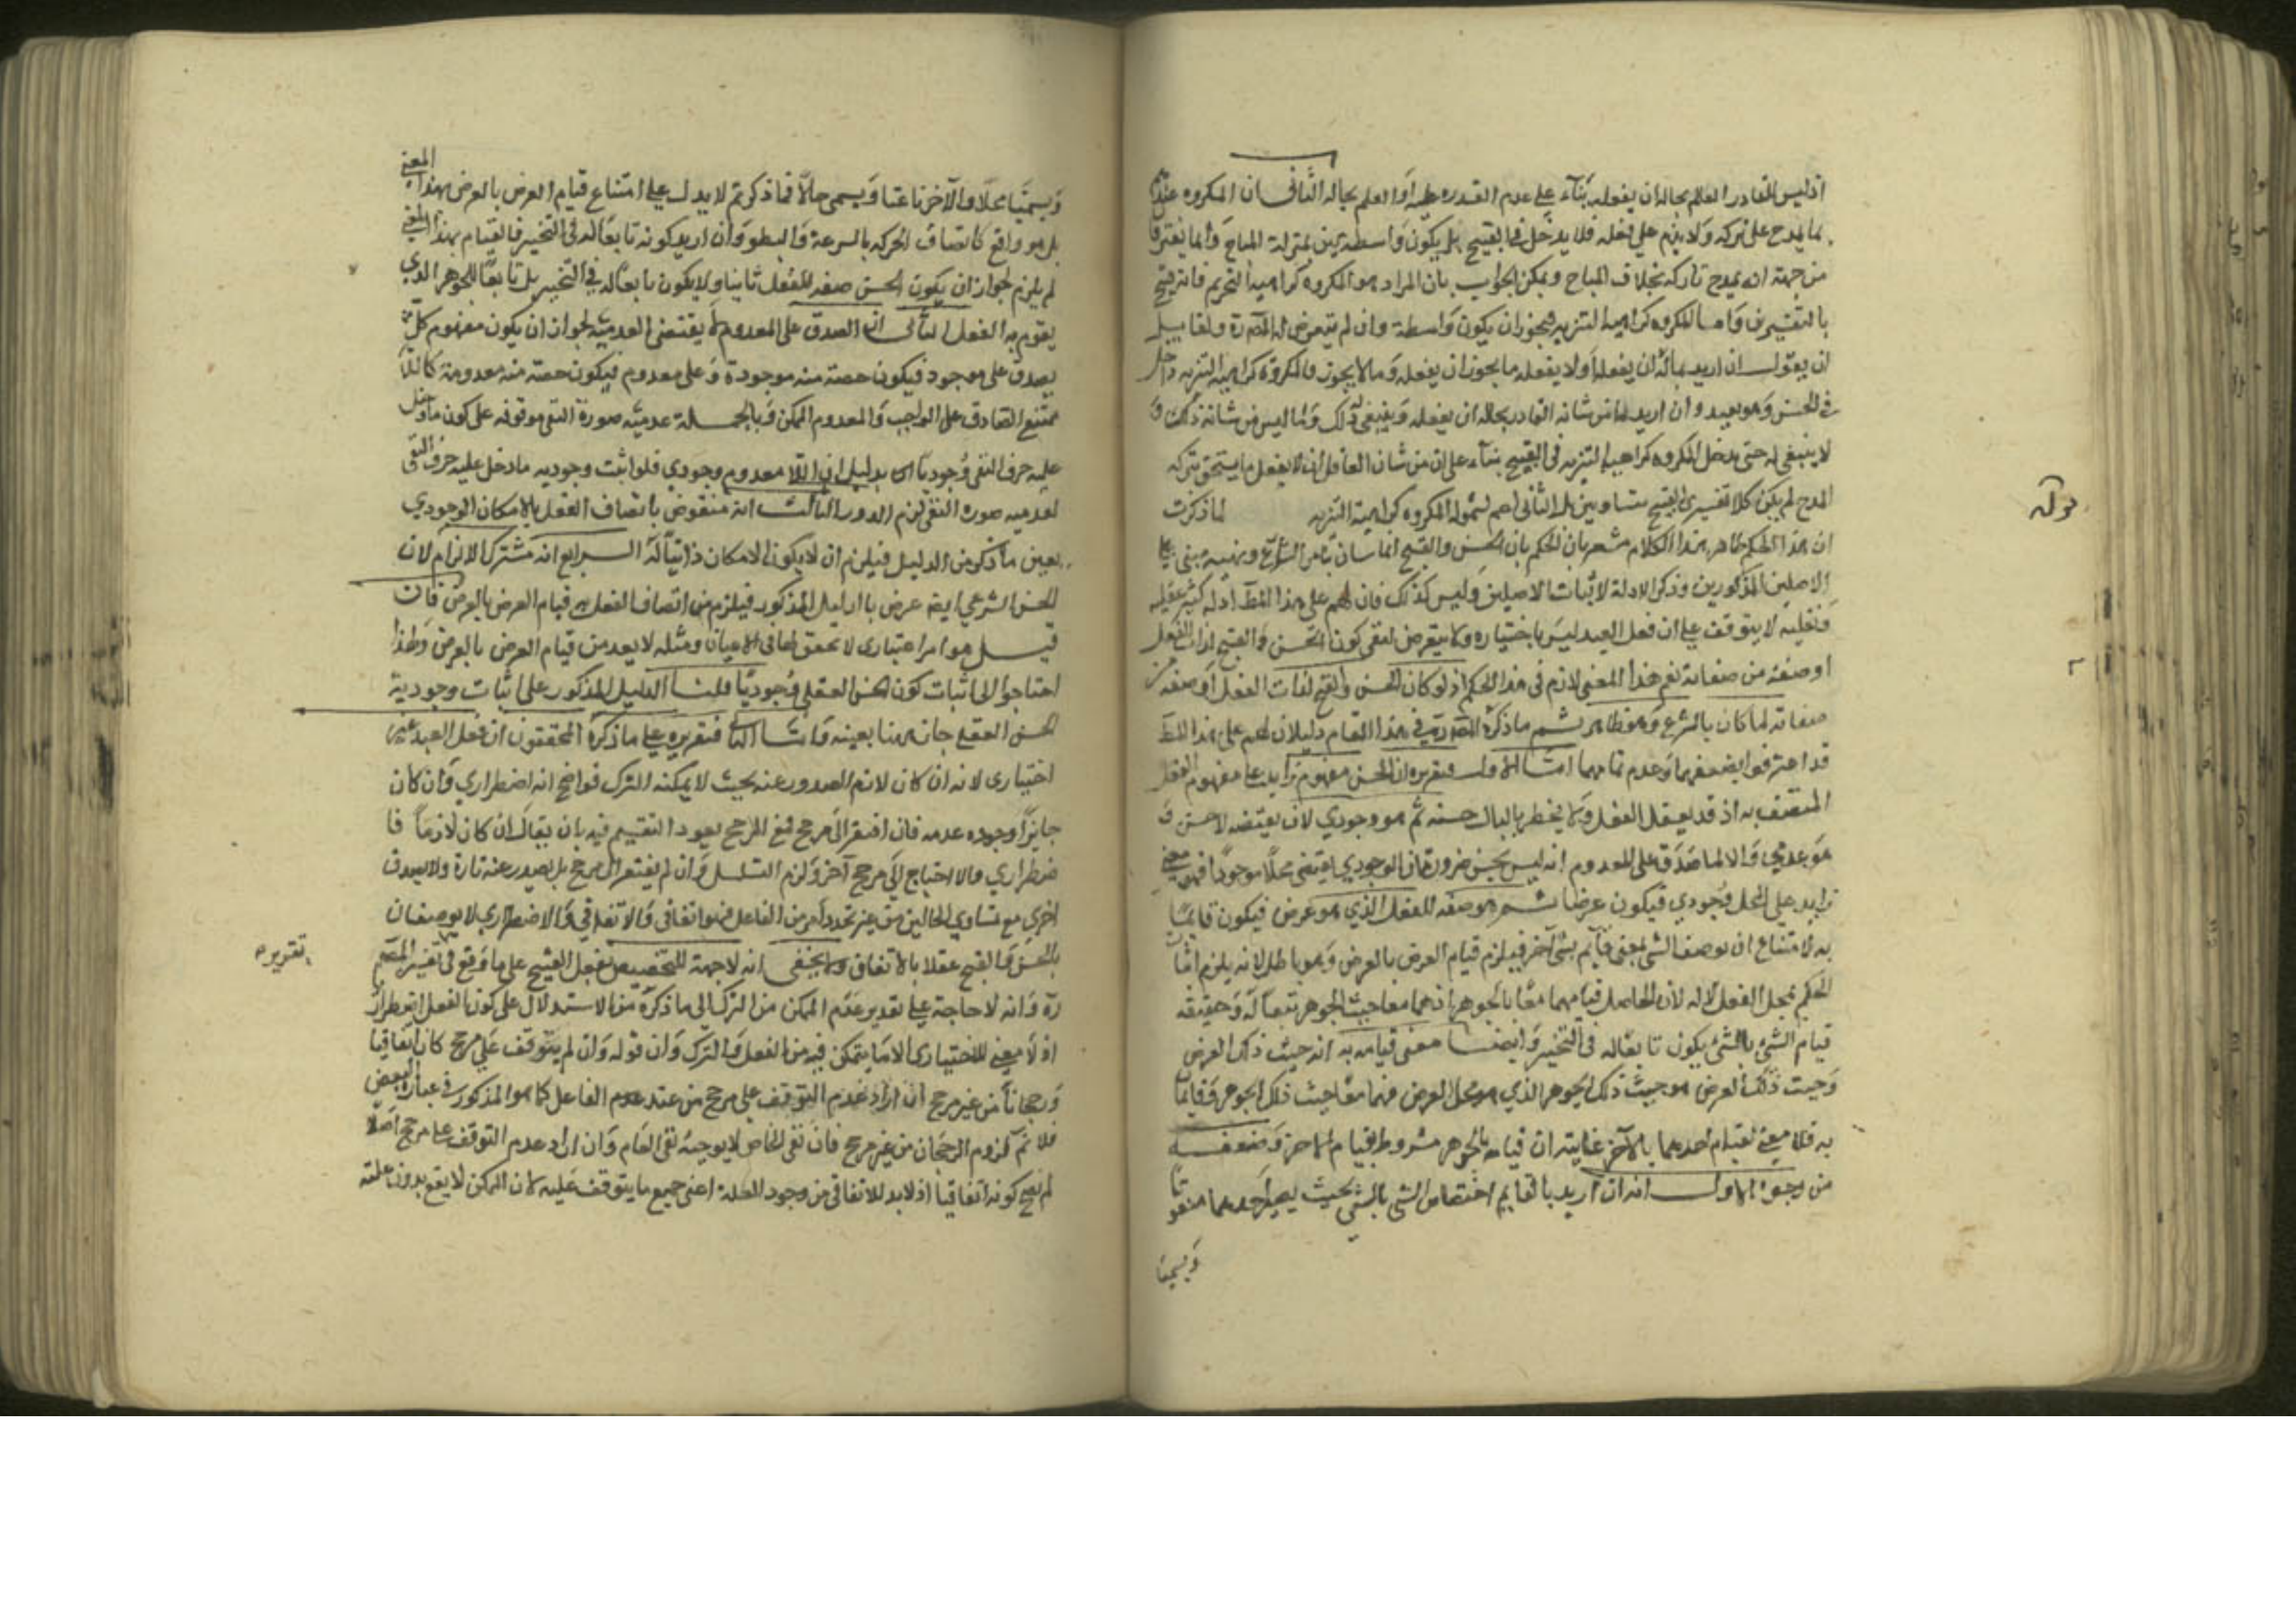 اذ ليس للقادر العالم بحاله ان يفعله بناء على عدم القدرة عليه او العلم بحاله الثاني ان المكروه عندكم
مما يمدح على تركه ولا يذم على فعله فلا يدخل في القبيح بل يكون واسطة بمنزلة المباح وانما يفترقا
من جهة انه يمدح تاركه بخلاف المباح ويمكن الجواب بان المراد هو المكروه كراهية التحريم فانه قبيح
بالتفسيرين واما المكروه كراهية التنزيه فيجوز ان يكون واسطة وان لم يتعرض له المص ره ولقايل
ان يقول ان اريد بماله ان يفعله اولا يفعله ما يجوز ان يفعله وما لا يجوز فالمكروه كراهية التنزيه داخل
في الحسن وهو بعيد وان اريد ما من شانه القادر بحاله ان يفعله وينبغي له ذلك وما ليس من شانه ذلك و
لا ينبغي له حتى يدخل المكروه كراهية التنزيه في القبيح بناء على ان من شان العاقل ان لا يفعل ما يستحق بتركه
المدح لم يكن كلا تفسيري القبيح متساويين بل الثاني اعم لشموله المكروه كراهية التنزيه لما ذكرت
قوله
ان هذا الحكم ظاهر هذا الكلام مشعر بان الحكم بان الحسن والقبح انما يثبتان بامر الشارع ونهيه مبني على
الاصلين المذكورين وذكر الادلة لاثبات الاصلين وليس كذلك فان لهم على هذا المط ادلة كثيرة عقلية
ونقلية لا يتوقف على ان فعل العبد ليس باختياره ولا يتعرض لنفي كون الحسن والقبح لذات الفعل
او صفة من صفاته نعم هذا المعنى لازم في هذا الحكم اذ لو كان الحسن والقبح لذات الفعل او صفة من
صفاته لما كان بالشرع وهو ظاهر ثم ما ذكره المص ره في هذا المقام دليلان لهم على هذا المط
قد اعترفوا بضعفهما وعدم تمامهما اما الاول فتقريره ان الحسن مفهوم زايد على مفهوم الفعل
المتصف به اذ قد يعقل الفعل ولا يخطر بالبال حسنه ثم هو وجودي لان نقيضه لا حسن و
هو عدمي والا لما صدق على المعدوم انه ليس بحسن ضرورة ان الوجودي يقتضي محلا موجودا فهو معنى
زايد على المحل وجودي فيكون عرضا ثم هو صفة للفعل الذي هو عرض فيكون قايما
به لامتناع ان يوصف الشي بمعنى قايم بشي آخر فيلزم قيام العرض بالعرض وهو باطل لانه يلزم اثبات
الحكم لمحل الفعل لا له لان الحاصل قيامهما معا بالجوهر اذ هما معا حيث الجوهر تبعا له وحقيقة
قيام الشي بالشي يكون تابعا له في التحيز وايضا معنى قيامه به انه حيث ذلك العرض
وحيث ذلك العرض هو حيث ذلك الجوهر الذي هو محل العرض فهما معا حيث ذلك الجوهر وقايما
به فلا معنى لقيام احدهما بالآخر غايته ان قيامه بالجوهر مشروط بقيام الاخر وضعفه
من وجوه الاول انه ان اريد بالقايم اختصاص الشي بالشي بحيث يصير احدهما منعوتا
ويسمى
ويسمى محلا والآخر ناعتا ويسمى حالا فما ذكرتم لا يدل على امتناع قيام العرض بالعرض بهذا المعنى
بل هو واقع كاتصاف الحركة بالسرعة والبطو وان اريد كونه تابعا له في التحيز فالقيام بهذا المعنى
لم يلزم لجواز ان يكون الحسن صفة للفعل ثابتا ولا يكون تابعا له في التحيز بل تابعا للجوهر الذي
يقوم به الفعل الثاني ان الصدق على المعدوم لا يقتضي العدمية لجواز ان يكون مفهوم كلي
يصدق على موجود فيكون حصة منه موجودة وعلى معدوم فيكون حصة منه معدومة كاللا
ممتنع الصادق على الواجب والمعدوم الممكن وبالجملة عدمية صورة النفي موقوفة على كون ما دخل
عليه حرف النفي وجوديا بدليل ان اللا معدوم وجودي فلو اثبت وجودية ما دخل عليه حرف النفي
لعدمية صورة النفي لزم الدور الثالث انه منقوض باتصاف الفعل بالامكان الوجودي
بعين ما ذكر من الدليل فيلزم ان لا يكون الامكان ذاتيا له الرابع انه مشترك الالزام لان
الحسن الشرعي ايضا عرض بالدليل المذكور فيلزم من اتصاف الفعل به قيام العرض بالعرض فان
قيل هو امر اعتباري لا تحقق لها في الاعيان ومثله لا يعد من قيام العرض بالعرض ولهذا
احتاجوا الى اثبات كون الحسن العقلي وجوديا قلنا الدليل المذكور على اثبات وجودية
الحسن العقلي جار هنا بعينه واما الثاني فتقريره على ما ذكره المحققون ان فعل العبد غير
اختياري لانه ان كان لازم الصدور عنه بحيث لا يمكنه الترك فواضح انه اضطراري وان كان
جايزا وجوده عدمه فان افتقر الى مرجح فمع المرجح يعود التقسيم فيه بان يقال ان كان لازما فا
ضطراري والا احتاج الى مرجح آخر ولزم التسلسل وان لم يفتقر الى مرجح بل يصدر عنه تارة ولا يصدق
اخرى مع تساوي الحالين من غير تجدد امر من الفاعل فهو اتفاقي والاتفاقي والاضطراري لا يوصفان
بالحسن والقبح عقلا بالاتفاق ولا يخفى انه لا جهة للتخصيص بفعل القبيح على ما وقع في تفسير المص
تقريره
ره وانه لا حاجة على تقدير عدم التمكن من الترك الى ما ذكره من الاستدلال على كون الفعل اضطراريا
اذ لا معنى للاختياري الا ما يتمكن فيه من الفعل والترك وان قوله وان لم يتوقف على مرجح كان اتفاقيا
ورجحانا من غير مرجح ان اراد عدم التوقف على مرجح من عند الفاعل كما هو المذكور في عبارة البعض
فلا نم لزوم الرجحان من غير مرجح فان نفي الخاص لا يوجب نفي العام وان اراد عدم التوقف على مرجح اصلا
لم يصح كونه اتفاقيا اذ لا بد للاتفاقي من وجود العلة اعني جميع ما يتوقف عليه لان الممكن لا يقع بدون علته